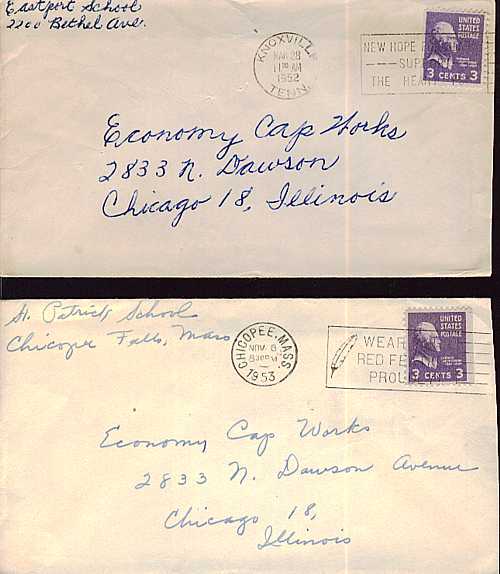 Eastport School
2200 Bethel Ave.
KNOXVILLE
MAR 28
11 AM
1952
TENN.
NEW HOPE
SUP
THE HEART
UNITED
STATES
POSTAGE
3 CENTS 3
Economy Cap Works
2833 N. Dawson
Chicago 18, Illinois
St. Patrick School
Chicopee Falls, Mass
CHICOPEE, MASS.
NOV 6
1953
WEAR
RED FE
PROU
UNITED
STATES
POSTAGE
3 CENTS 3
Economy Cap Works
2833 N. Dawson Avenue
Chicago 18,
Illinois